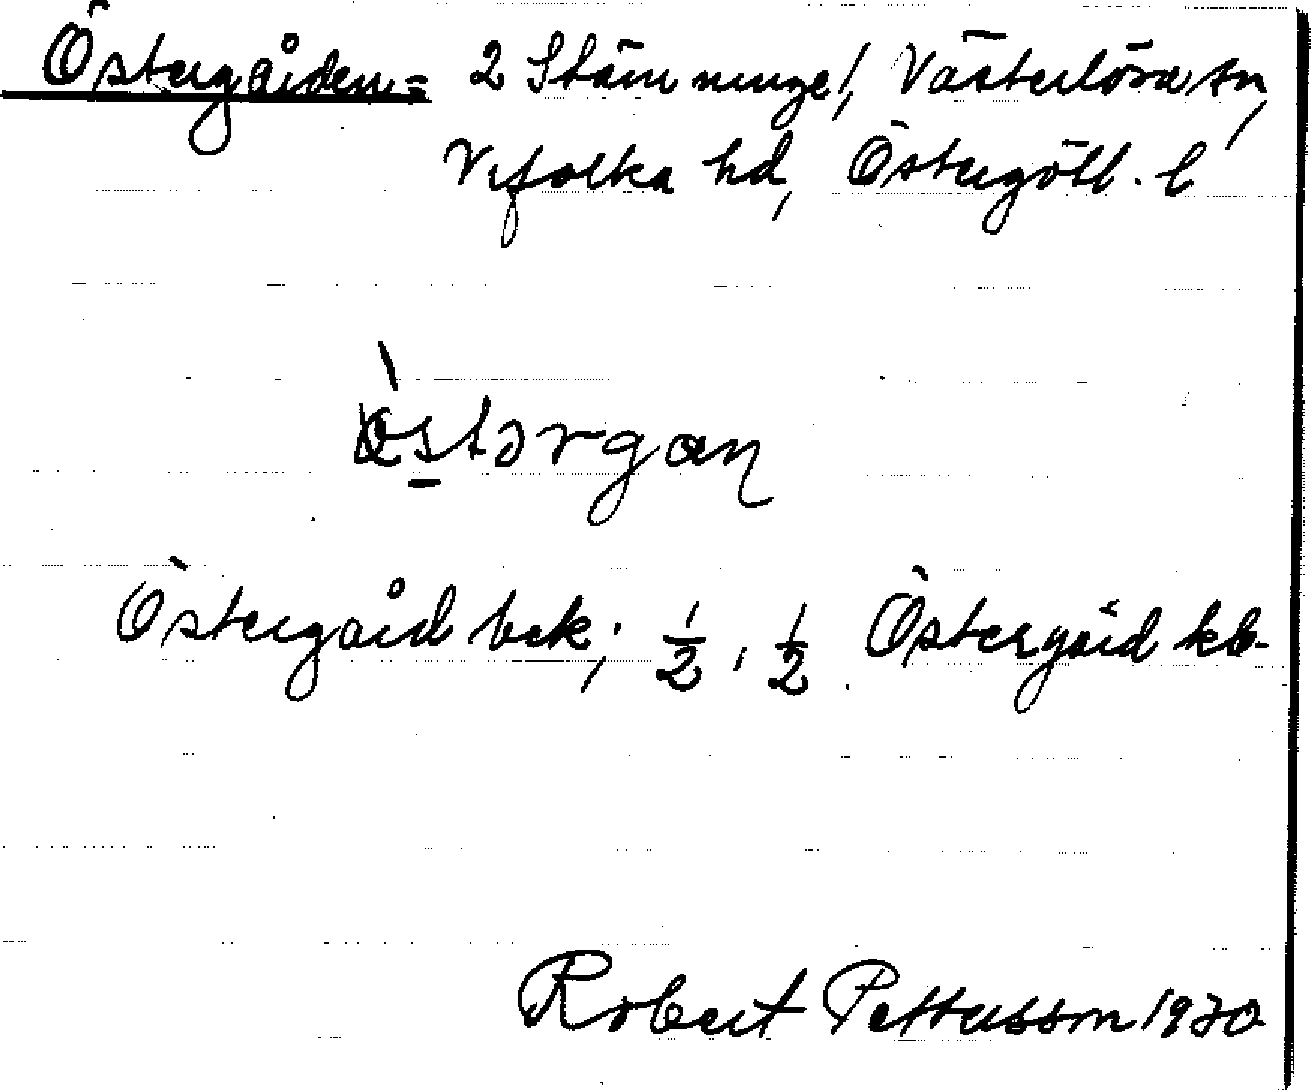 Östergården = 2 Stämminge!, Västerlösa sn,
Vifolka hd, Östergötl. l
östərgan
Östergård bek; 1/2, 1/2 Östergård kb.
Robert Pettersson 1930